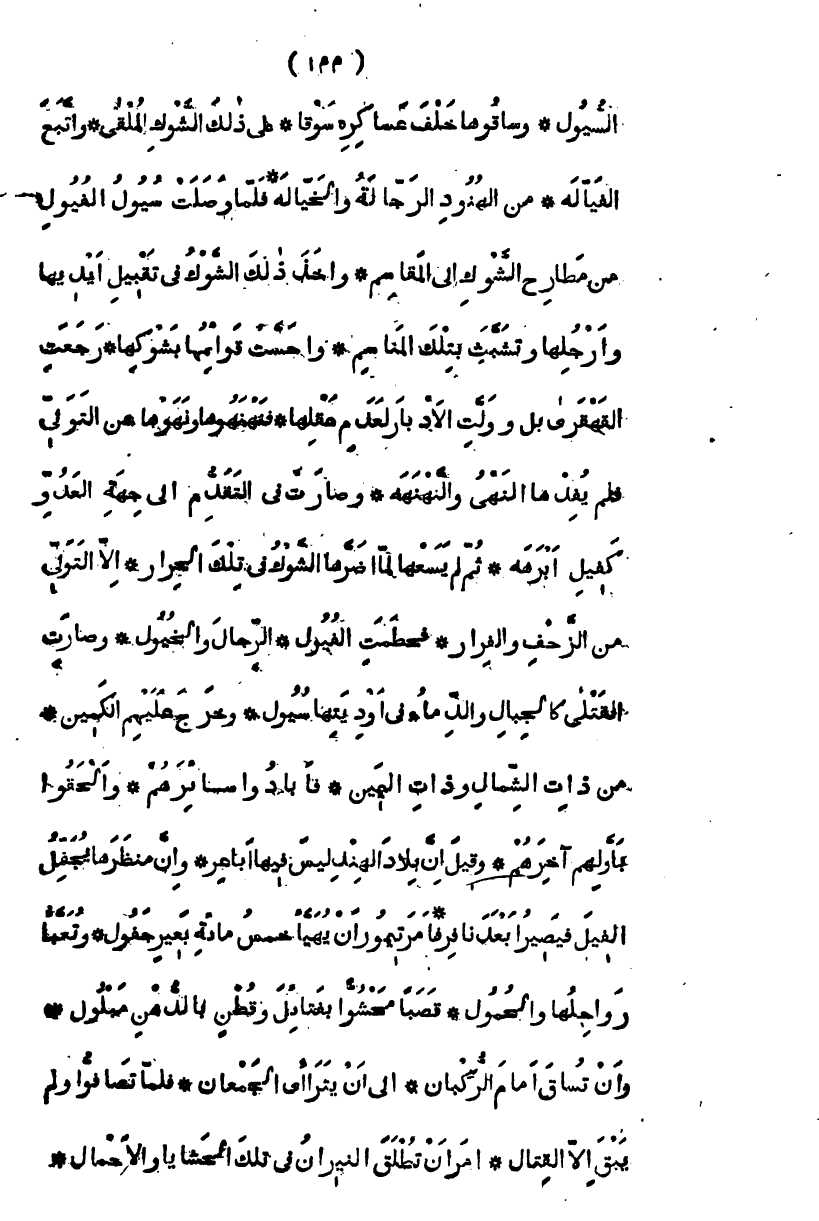 ( ١٣٣ )
السُّيُول * وساقُوها خَلْفَ عَساكِرِهِ سَوْقا * على ذٰلكَ الشَّوْكِ المُلْقٰى * واَتْبَعَ
الفَيّالَه * من الهُنُودِ الرَجّالَةُ والخَيّالَه * فَلَمّا وَصَلَتْ سُيُولُ الفُيُولِ
من مَطارِحِ الشَّوْكِ الى المَقاسِم * واخَذَ ذٰلكَ الشَّوْكُ فى تَقْبِيلِ اَيْدِيها
واَرْجُلِها وتَشَبَّثَ بِتِلْكَ المَناسِم * واحَسَّتْ قَوائِمُها بِشَوْكِها * رَجَعَتِ
القَهْقَرىٰ بل ووَلَّتِ الاَدْبارَ لعَدَمِ عَقْلِها * فنَهْنَهُوها ونَهَوْها عن التَوَلِّى
فلم يُفِدْها النَهْىُ والنَّهْنَهَه * وصارَتْ فى التَقَدُّمِ الى جِهَةِ العَدُوِّ
كَفِيلِ اَبْرَهَه * ثُمّ لم يَسَعْها لَمّا اضَرَّها الشَّوْكُ فى تِلْكَ الحِرار * اِلاّ التَوَلِّى
من الزَّحْفِ والفِرار * فحطَمَتِ الفُيُول * الرِّجالَ والخُيُول * وصارَتِ
القَتْلٰى كالجِبالِ والدِّماءُ فى اَوْدِيَتِها سُيُول * وخرَجَ عَلَيْهِم الكَمِين *
من ذاتِ الشِّمالِ وذاتِ اليَمِين * فاَبادُوا سائِرَهُمْ * واَلْحَقُوا
بأوَّلِهِم آخِرَهُمْ * وقيلَ اِنَّ بِلادَ الهِنْدِ ليسَ فيها اَباعِر * واِنَّ منظَرَها يُجَفِّلُ
الفِيلَ فيَصِيرُ اَبْعَدَ نافِر * فاَمَرَ تيمُورُ اَنْ يُهَيَّأَ خَمسُ مائَةِ بَعِيرٍ جَفُول * وتُعَبَّأَ
رَواحِلُها والحُمُول * قَصَبًا مَحْشُوًّا بفَتائِلَ وقُطْنٍ بالدُّهْنِ مَبْلُول *
واَنْ تُساقَ اَمامَ الرُّكْبان * الى اَنْ يَتَراأى الجَمْعان * فلمّا تَصافُّوا ولم
يَبْقَ اِلاّ القِتال * امَرَ اَنْ تُطْلَقَ النيرانُ فى تلكَ المَحشايا والاَحْمال *